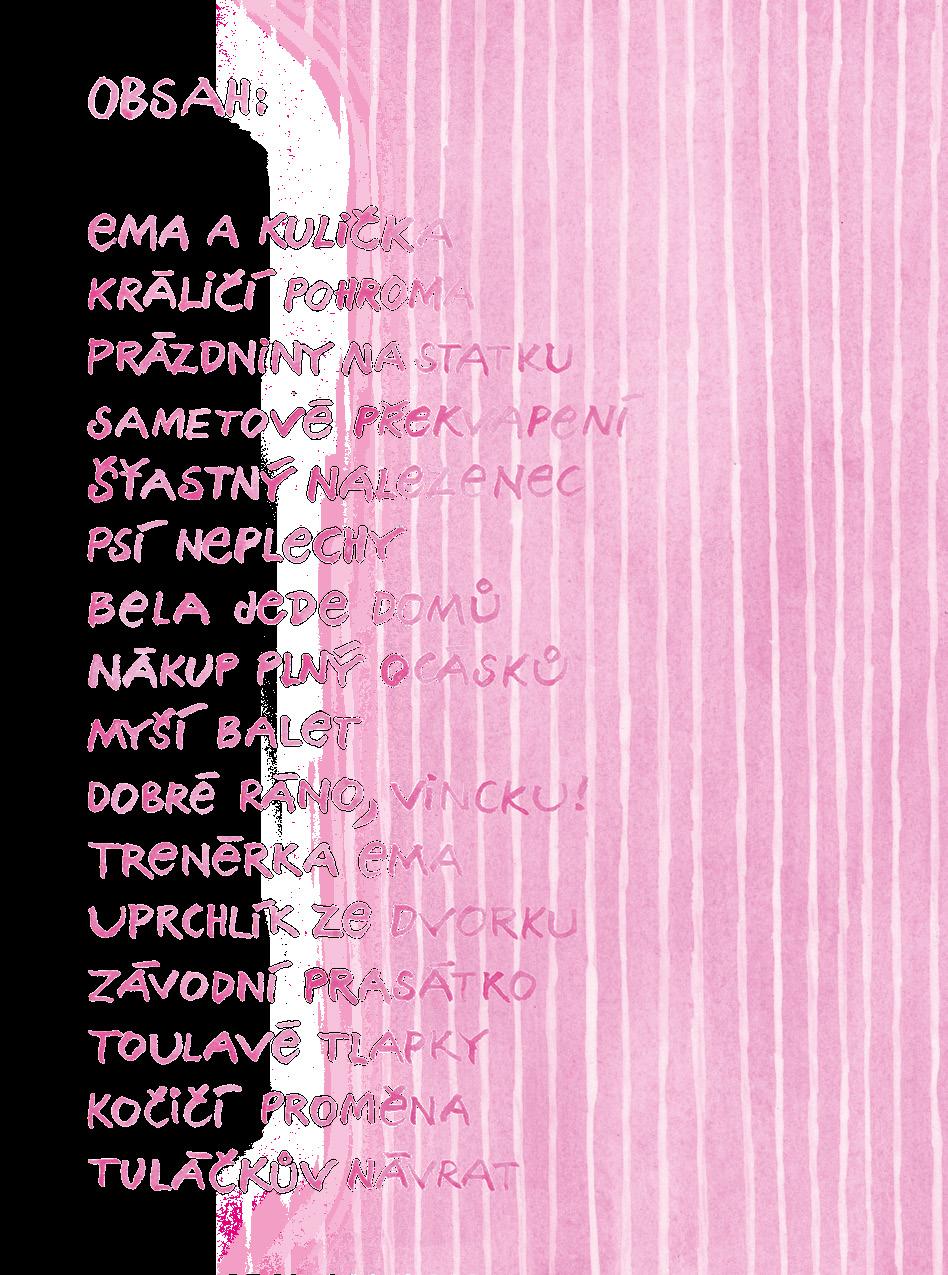 OBSAH:
EMA A KULIČKA
KRÁLIČÍ POHROMA
PRÁZDNINY NA STATKU
SAMETOVÉ PŘEKVAPENÍ
ŠŤASTNÝ NALEZENEC
PSÍ NEPLECHY
BELA JEDE DOMŮ
NÁKUP PLNÝ OCÁSKŮ
MYŠÍ BALET
DOBRÉ RÁNO, VINCKU!
TRENÉRKA EMA
UPRCHLÍK ZE DVORKU
ZÁVODNÍ PRASÁTKO
TOULAVÉ TLAPKY
KOČIČÍ PROMĚNA
TULÁČKŮV NÁVRAT